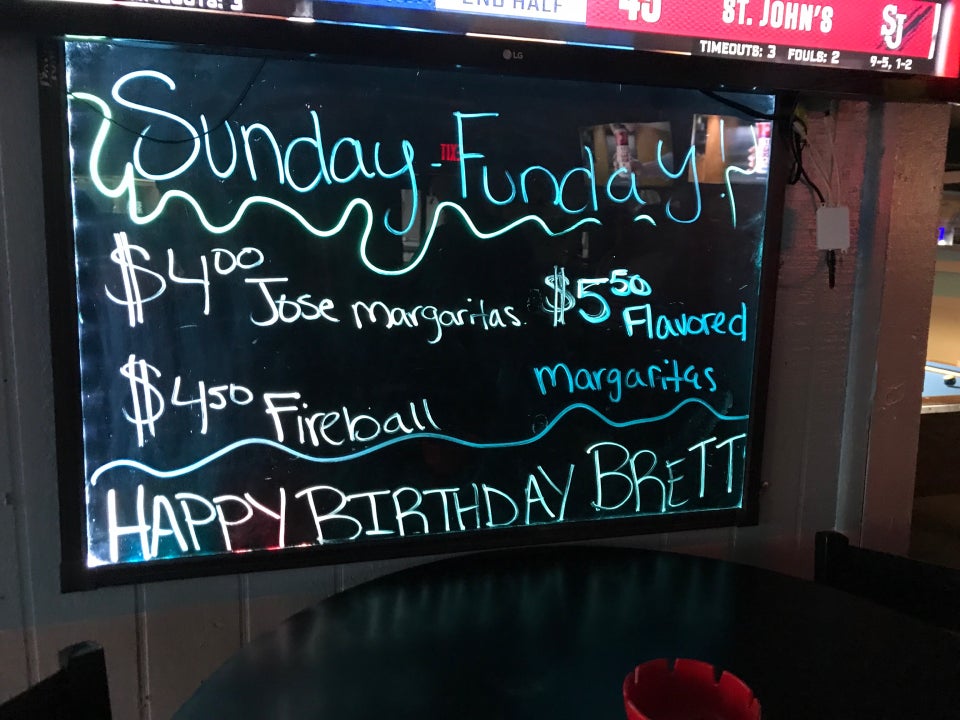 2ND HALF
ST. JOHN'S
SJ
TIMEOUTS: 3 FOULS: 2
9-5, 1-2
LG
Sunday-Funday!
$4.00 Jose margaritas
$5.50 Flavored
margaritas
$4.50 Fireball
HAPPY BIRTHDAY BRETT